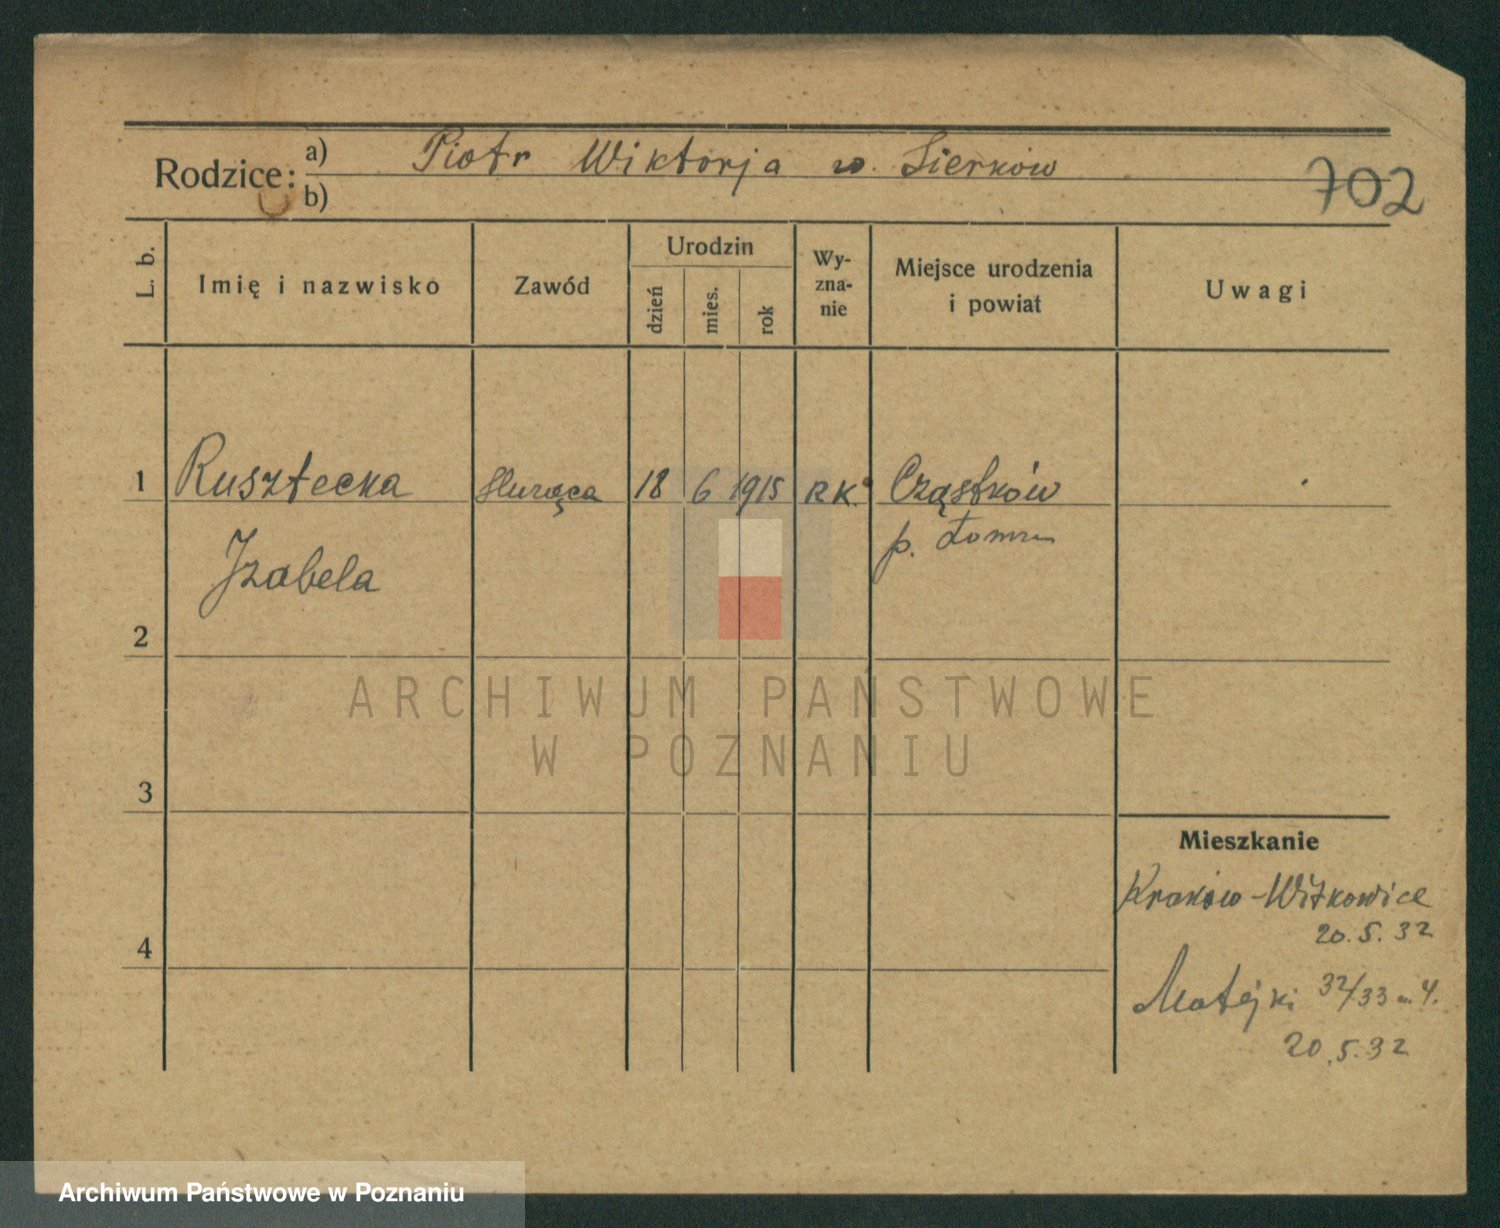 Rodzice: a) Piotr Wiktorja w. Sierków
b)
702
L. b.
Imię i nazwisko
Zawód
Urodzin
dzień
mies.
rok
Wy-
zna-
nie
Miejsce urodzenia
i powiat
Uwagi
1 Rusztecka Służąca 18 6 1915 RK. Cząstków
p.
Izabela
2
ARCHIWUM PAŃSTWOWE
W POZNANIU
3
Mieszkanie
Kraków-Witkowice
20.5.32
4
Matejki 32/33 m. 4.
20.5.32
Archiwum Państwowe w Poznaniu